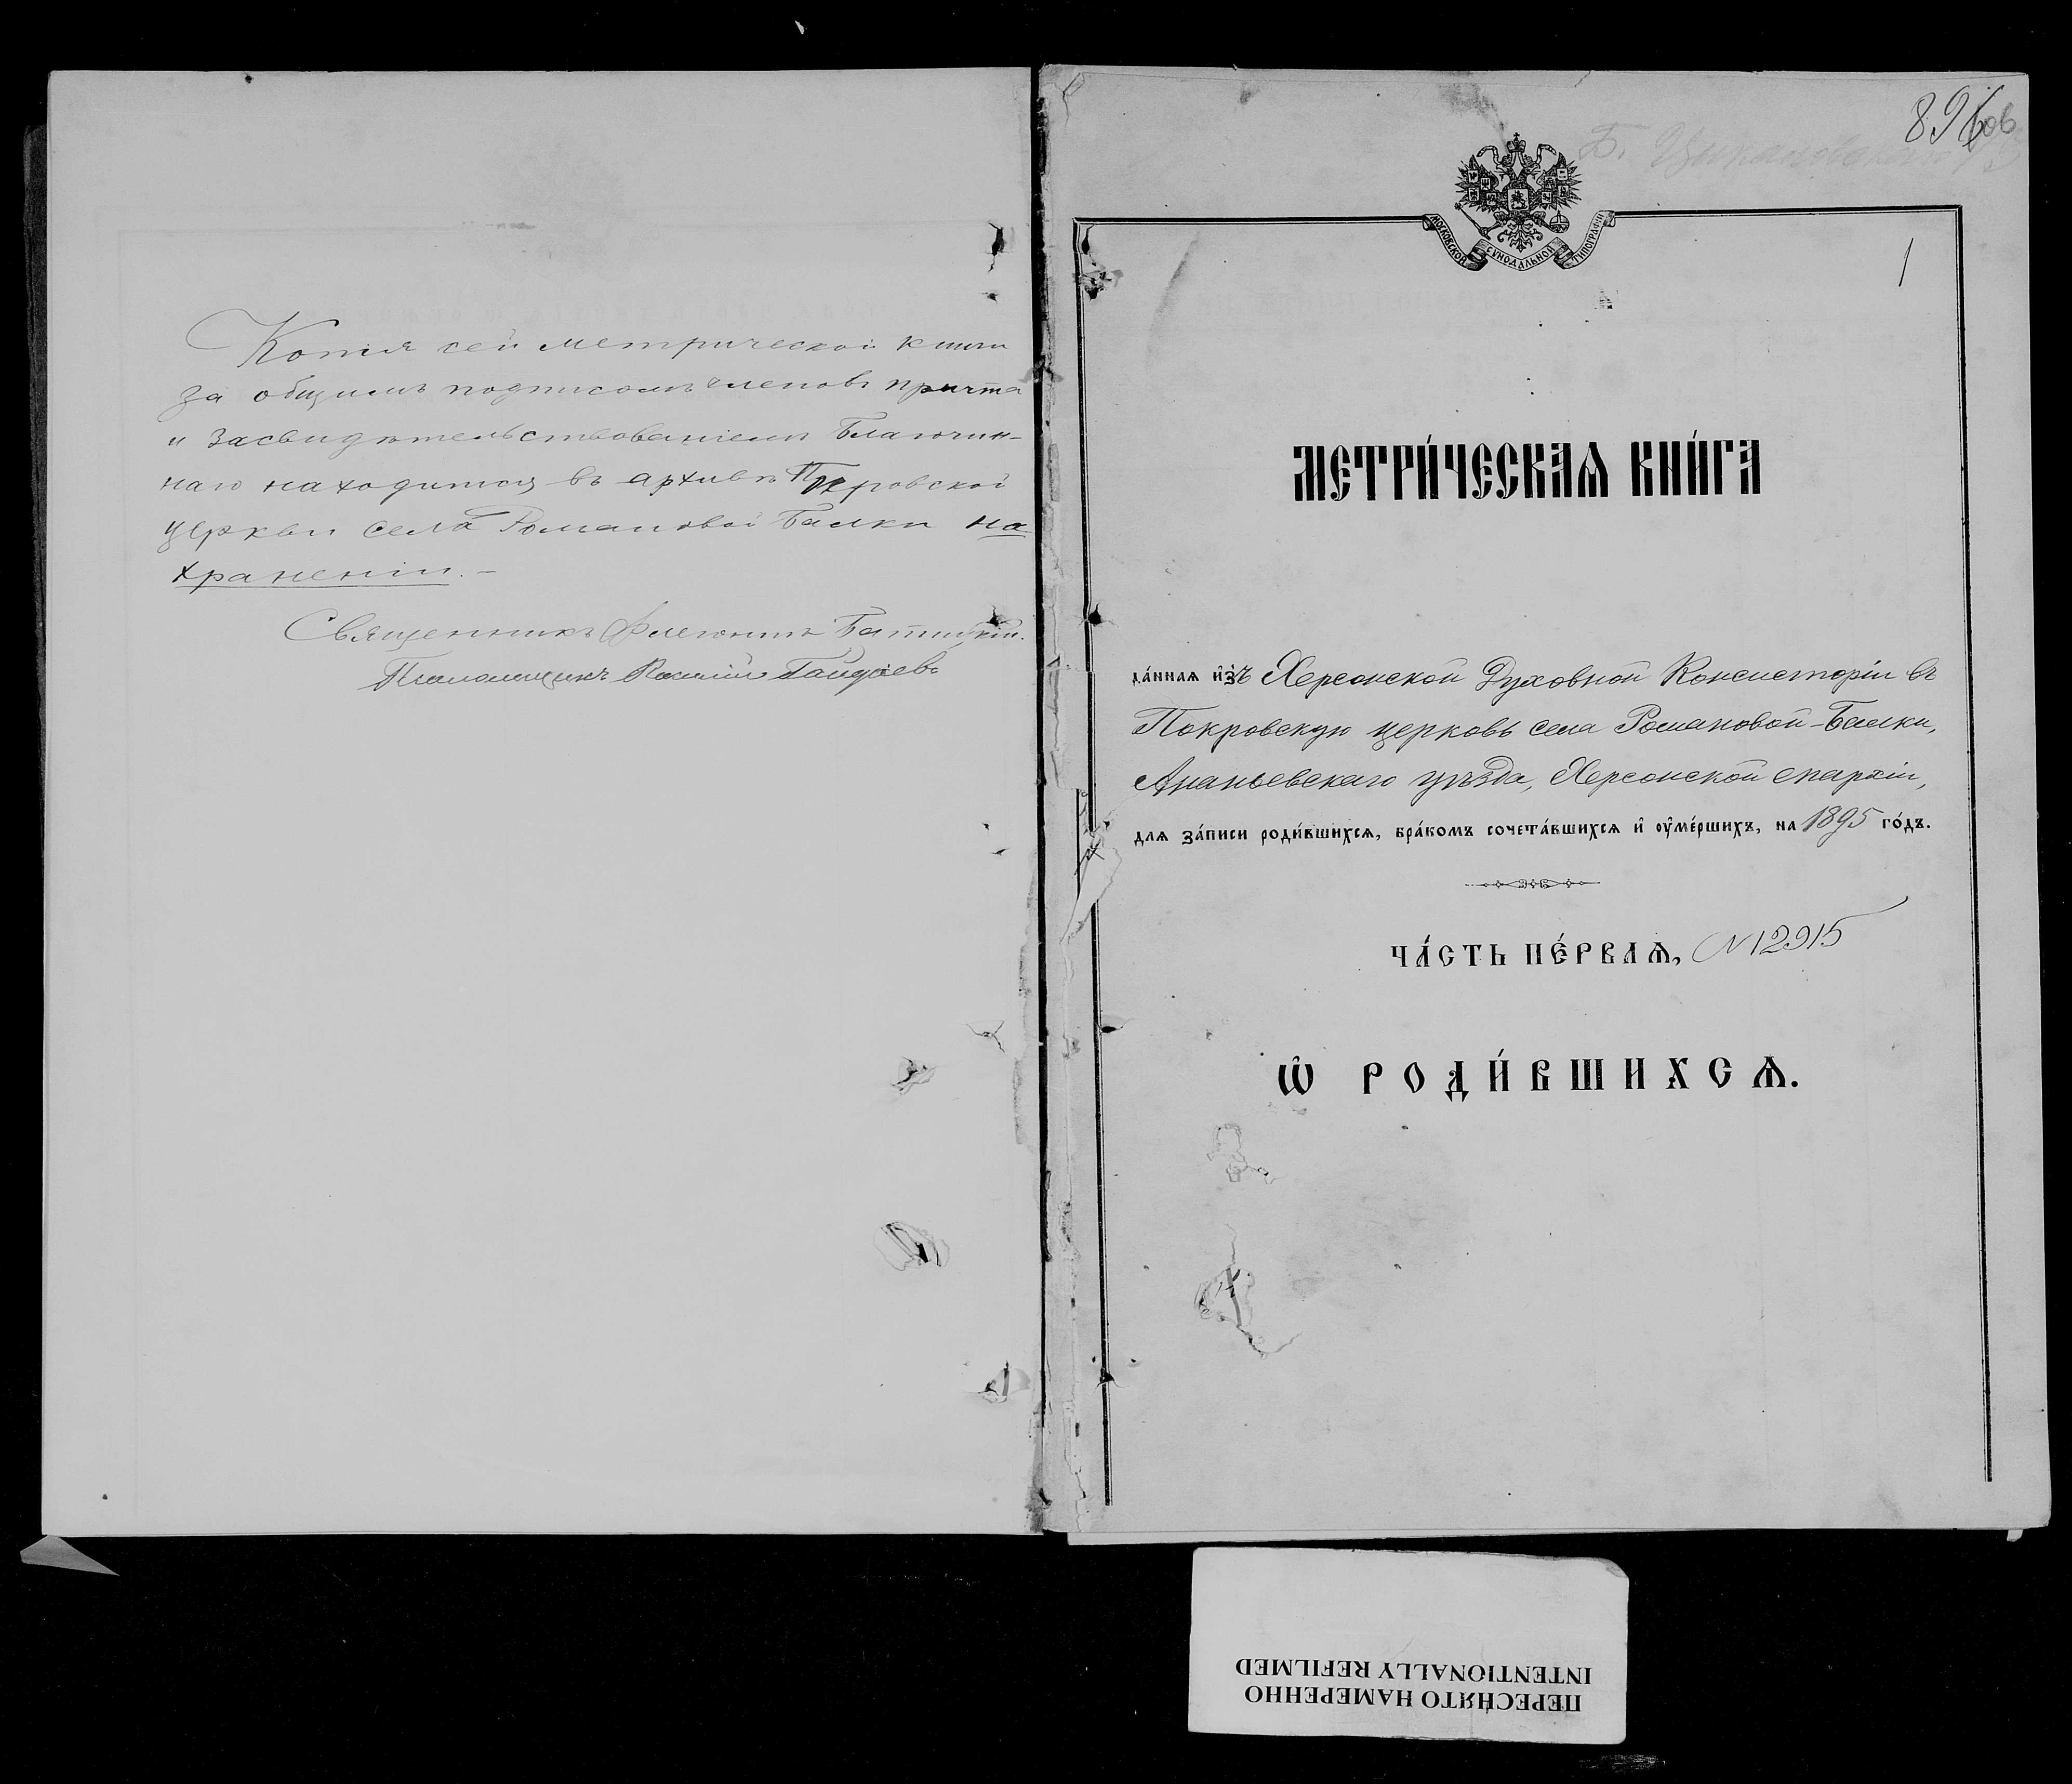 Копія сей метрической книги
за общимъ подписомъ членовъ причта
и засвидѣтельствованіемъ Благочин-
наго находится въ архивѣ Покровской
церкви села Романовой Балки на
храненіи.—
Священникъ
896
1
МОСКОВСКОЙ СѴНОДАЛЬНОЙ ТИПОГРАФІИ
МЕТРИ́ЧЕСКАѦ КНИ́ГА
да́ннаѧ и҆зъ Херсонской Духовной Консисторіи въ
Покровскую церковь села Романовой-Балки,
Ананьевскаго уѣзда, Херсонской епархіи,
для за́писи роди́вшихсѧ, бра́комъ сочета́вшихсѧ и҆ ᲂу҆ме́ршихъ, на 1895 го́дъ.
ЧА́СТЬ ПЕ́РВАѦ, N 12915
Ѽ РОДИ́ВШИХСѦ.
ПЕРЕСНЯТО НАМЕРЕННО
INTENTIONALLY REFILMED